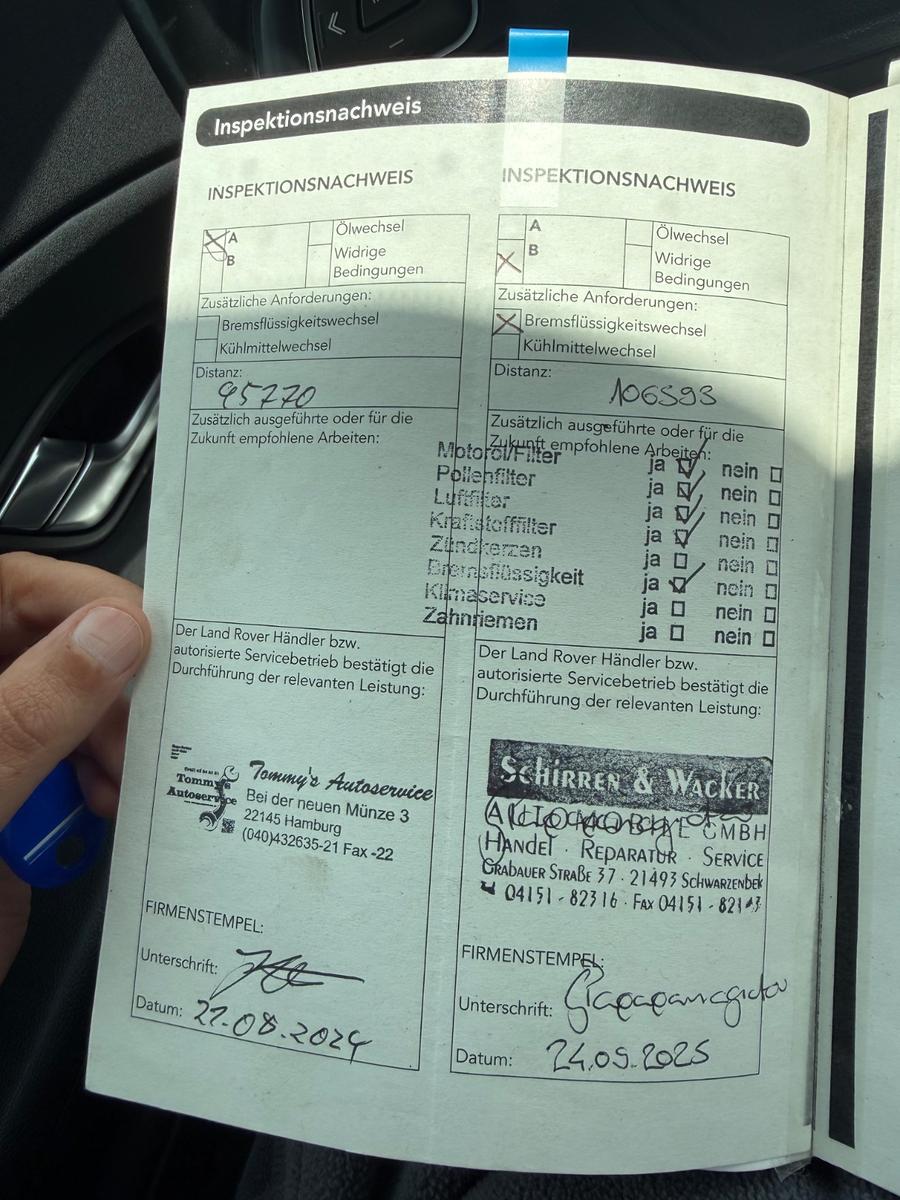 Inspektionsnachweis
INSPEKTIONSNACHWEIS
A
B
Ölwechsel
Widrige
Bedingungen
Zusätzliche Anforderungen:
Bremsflüssigkeitswechsel
Kühlmittelwechsel
Distanz:
95770
Zusätzlich ausgeführte oder für die
Zukunft empfohlene Arbeiten:
Der Land Rover Händler bzw.
autorisierte Servicebetrieb bestätigt die
Durchführung der relevanten Leistung:
Tommy's
Autoservice
Tommy's Autoservice
Bei der neuen Münze 3
22145 Hamburg
(040)432635-21 Fax -22
FIRMENSTEMPEL:
Unterschrift:
Datum: 22.08.2024
INSPEKTIONSNACHWEIS
A
B
Ölwechsel
Widrige
Bedingungen
Zusätzliche Anforderungen:
Bremsflüssigkeitswechsel
Kühlmittelwechsel
Distanz:
106593
Zusätzlich ausgeführte oder für die
Zukunft empfohlene Arbeiten:
Motoröl/Filter ja nein
Pollenfilter ja nein
Luftfilter ja nein
Kraftstofffilter ja nein
Zündkerzen ja nein
Bremsflüssigkeit ja nein
Klimaservice ja nein
Zahnriemen ja nein
Der Land Rover Händler bzw.
autorisierte Servicebetrieb bestätigt die
Durchführung der relevanten Leistung:
SCHIRREN & WACKER
AUTOMOBILE GMBH
HANDEL · REPARATUR · SERVICE
GRABAUER STRAßE 37 · 21493 SCHWARZENBEK
04151 - 82316 · FAX 04151 -
FIRMENSTEMPEL:
Unterschrift:
Datum: 24.09.2025